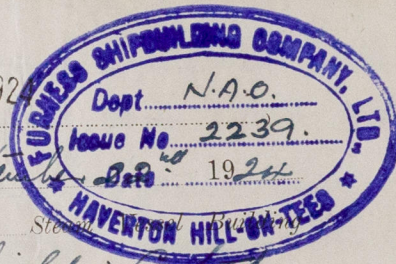 FURNESS SHIPBUILDING COMPANY, LTD.
Dept N.A.O.
Issue No 2239.
Date 22nd 1924
HAVERTON HILL-ON-TEES